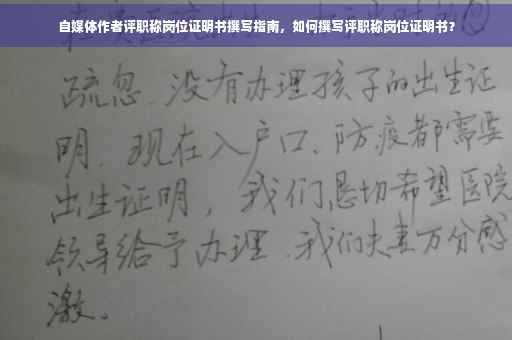 自媒体作者评职称岗位证明书撰写指南，如何撰写评职称岗位证明书？
疏忽、没有办理孩子的出生证
明、现在入户口、防疫都需要
出生证明，我们恳切希望医院
领导给予办理、我们夫妻万分感
激。